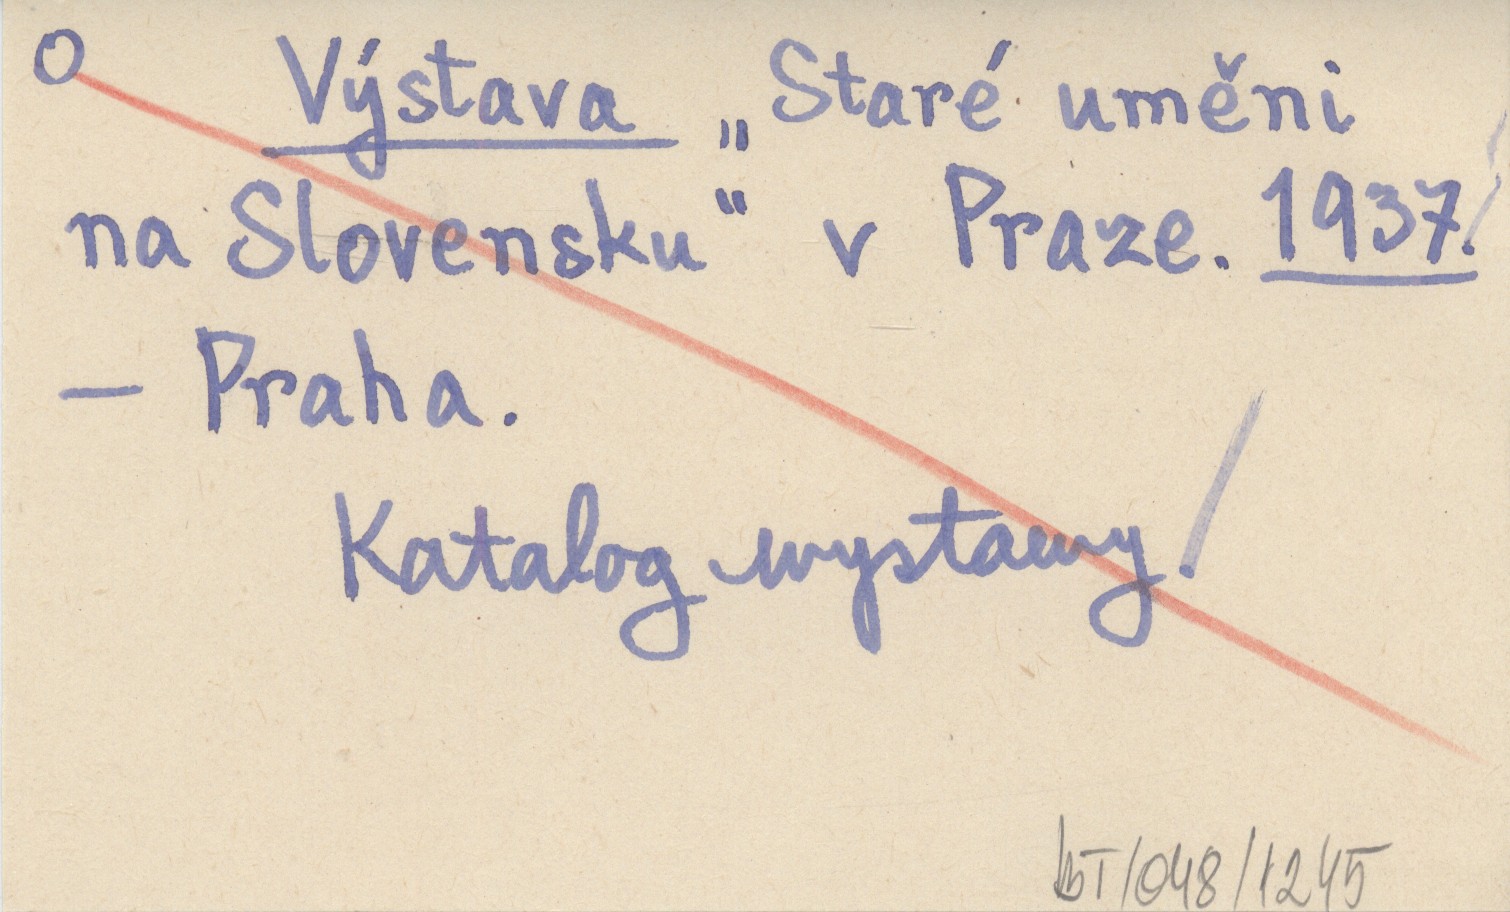 O Výstava „Staré uměni
na Slovensku“ v Praze. 1937!
– Praha.
Katalog wystawy!
BT/048/1245